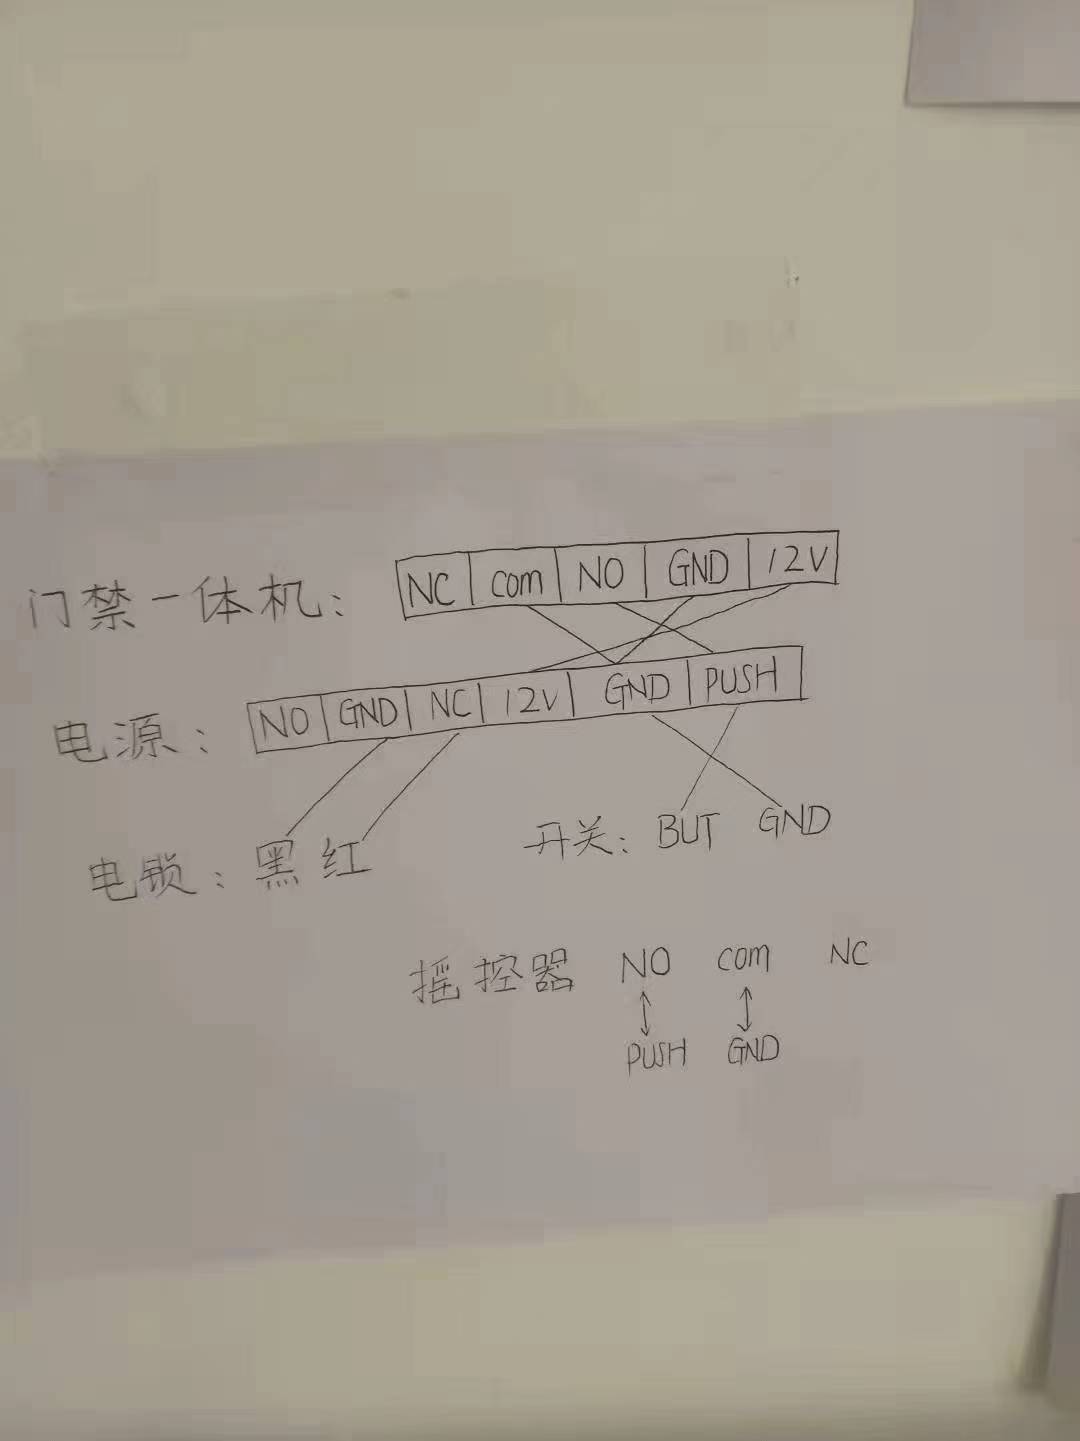 门禁一体机: NC com NO GND 12V
电源: NO GND NC 12V GND PUSH
电锁: 黑 红 开关: BUT GND
摇控器 NO com NC
PUSH GND